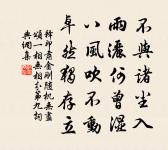 不與諸塵入
雨灑何曾濕
八風吹不動
卓然獨存立
釋印肅金剛随机無盡
頌一相無相分第九詞
典網集